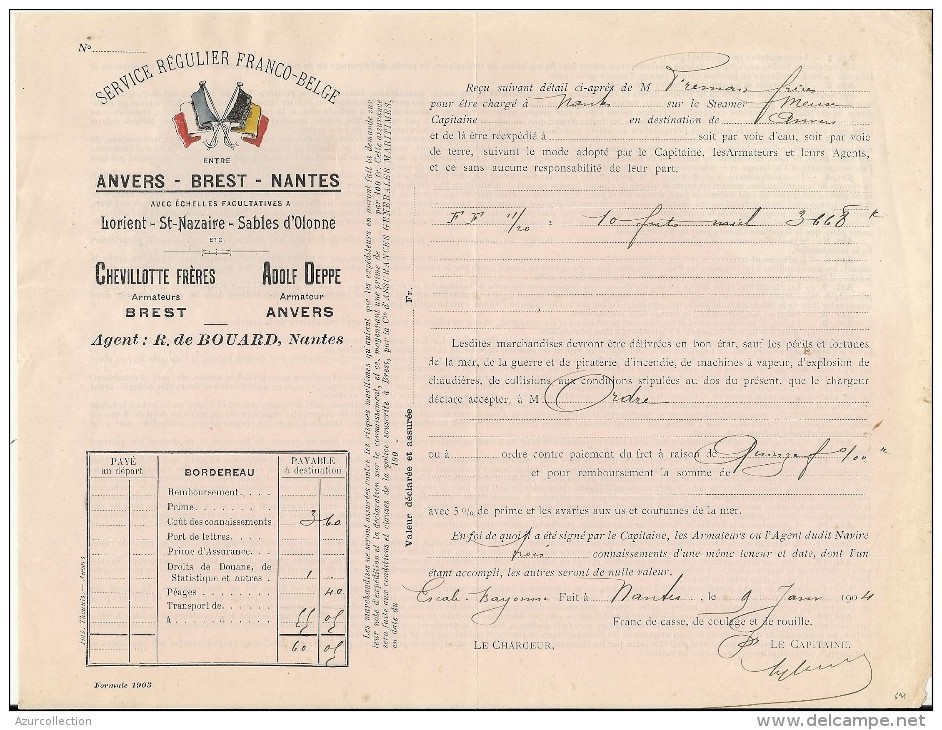 No
SERVICE RÉGULIER FRANCO-BELGE
ENTRE
ANVERS - BREST - NANTES
AVEC ÉCHELLES FACULTATIVES A
Lorient - St-Nazaire - Sables d'Olonne
ETC
CHEVILLOTTE FRÈRES
Armateurs
BREST
ADOLF DEPPE
Armateur
ANVERS
Agent : R. de BOUARD, Nantes
PAYÉ au départ
BORDEREAU
PAYABLE à destination
Remboursement
Prime
Coût des connaissements 3 60
Port de lettres
Prime d'Assurance
Droits de Douane, de
Statistique et autres 1
Péages 40
Transport de
à 55 05
60 05
Formule 1903
Les marchandises ne seront assurées contre les risques maritimes qu'autant que les expéditeurs en auront fait la demande sur
leur note d'expédition et la déclaration sur le connaissement, et ce, moyennant une prime de par 100 fr. Cette assurance
sera faite aux conditions et clauses de la police souscrite à Brest, par la Cie d'ASSURANCES GÉNÉRALES MARITIMES,
en date du 190
Valeur déclarée et assurée Fr.
Reçu suivant détail ci-après de M frères
pour être chargé à Nantes sur le Steamer
Capitaine en destination de Anvers
et de là être réexpédié à soit par voie d'eau, soit par voie
de terre, suivant le mode adopté par le Capitaine, les Armateurs et leurs Agents,
et ce sans aucune responsabilité de leur part.
F F 11/20 : 10 futs miel 3668 k
Lesdites marchandises devront être délivrées en bon état, sauf les périls et fortunes
de la mer, de la guerre et de piraterie, d'incendie, de machines à vapeur, d'explosion de
chaudières, de collisions aux conditions stipulées au dos du présent, que le chargeur
déclare accepter, à M Ordre
ou à ordre contre paiement du fret à raison de
et pour remboursement la somme de
avec 5 % de prime et les avaries aux us et coutumes de la mer.
En foi de quoi il a été signé par le Capitaine, les Armateurs ou l'Agent dudit Navire
trois connaissements d'une même teneur et date, dont l'un
étant accompli, les autres seront de nulle valeur.
Escale Bayonne Fait à Nantes le 9 Janv 1904
Franc de casse, de coulage et de rouille.
LE CHARGEUR,
LE CAPITAINE,
Azurcollection
www.delcampe.net